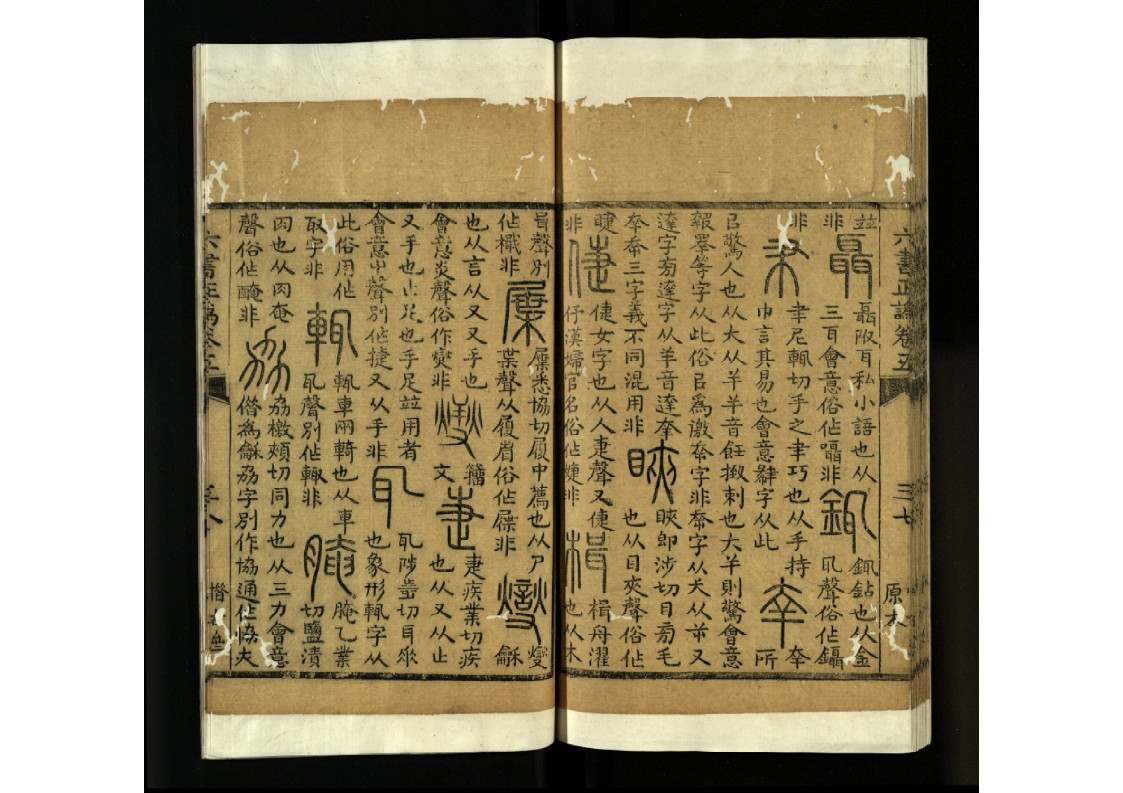 六書正譌卷五 三七 原
竝 聶 聶附耳私小語也从 鈪 鈪鉆也从金
非 三耳會意俗作囁非 耴聲俗作鑷
非 㚔 㚔尼輒切手之㚔巧也从手持 㚔 㚔
巾言其易也會意辥字从此 所
㠯驚人也从大从羊羊音飪撳刺也大羊則驚會意
報睪等字从此俗㠯爲激㚔字非㚔字从夭从屰又
達字有逹字从羊音達㚔
㚔㚔三字義不同混用非 䀹 䀹卽涉切目旁毛
也从目夾聲俗作
睫 倢 倢女字也从人疌聲又倢 楫 楫舟濯
非 伃漢婦官名俗作婕非 也从木
旨聲別 屧 屧悉協切履中薦也从尸 燮 燮
作檝非 枼聲从履省俗作屟非 龢
也从言从又又手也 燮 籒 疌 疌疾業切疾
會意炎聲俗作爕非 文 也从又从止
又手也止足也手足竝用者 耴 耴陟葉切耳𠂢
會意屮聲別作捷又从手非 也象形輒字从
此俗用作 輒 輒車兩輢也从車 腌 腌乙業
取字非 耴聲別作輙非 切鹽漬
肉也从肉奄 劦 劦檄頰切同力也从三力會意
聲俗作醃非 偕爲龢劦字別作協通作恊夫
六書正譌卷五